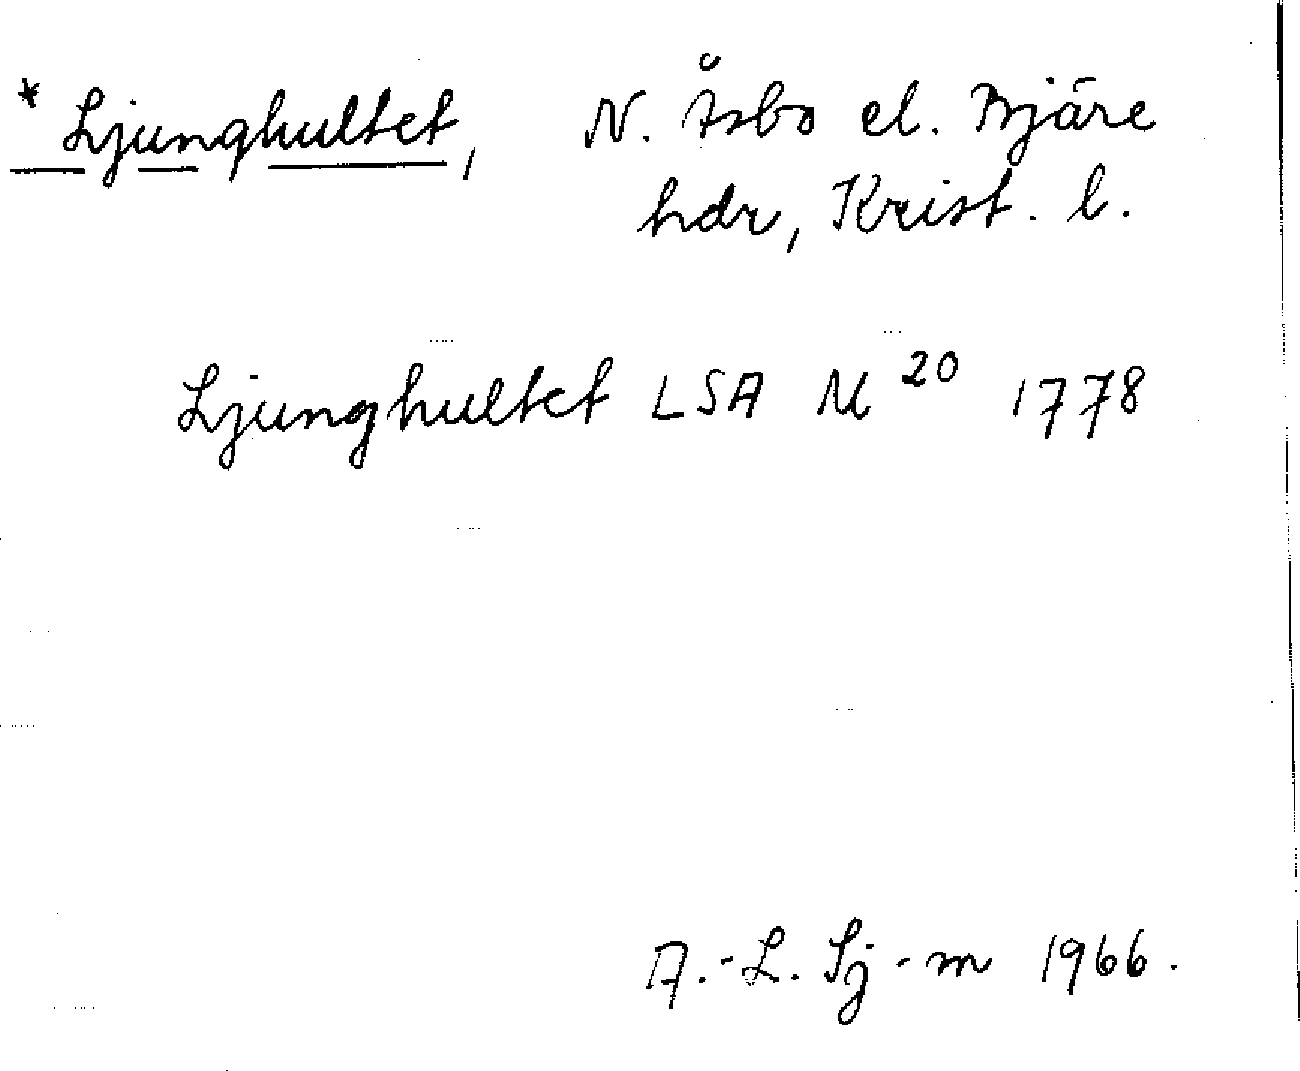 * Ljunghultet, N. Åsbo el. Bjäre
hdr, Krist. l.
Ljunghultet LSA M 20 1778
A.-L. Sj-m 1966.